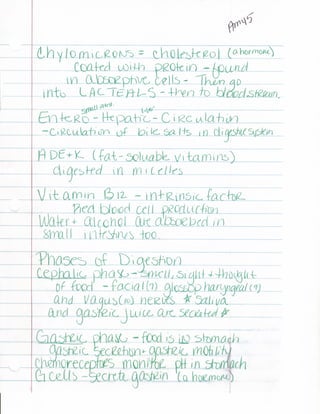 Amy 5
Chylomicrons = cholesterol (a hormone)
coated with protein - found
in absorptive cells - Then go
into LACTEALS - then to bloodstream.
small intes. liver
Entero - Hepatic - Circulation
- circulation of bile salts in digestive system
ADE+K (fat-soluable vitamins)
digested in micelles
Vitamin B12 - intrinsic factor
Red blood cell production
Water + alcohol are absorbed in
small intestines too.
Phases of Digestion
Cephalic phase - smell, sight + thought
of food - facial (7) glossopharyngeal (9)
and Vagus (10) nerves * Saliva
and gastric juice are secreted *
Gastric phase - food is in stomach
gastric secretion + gastric motility
chemoreceptors monitor pH in stomach
G cells - secrete gastrin (a hormone)